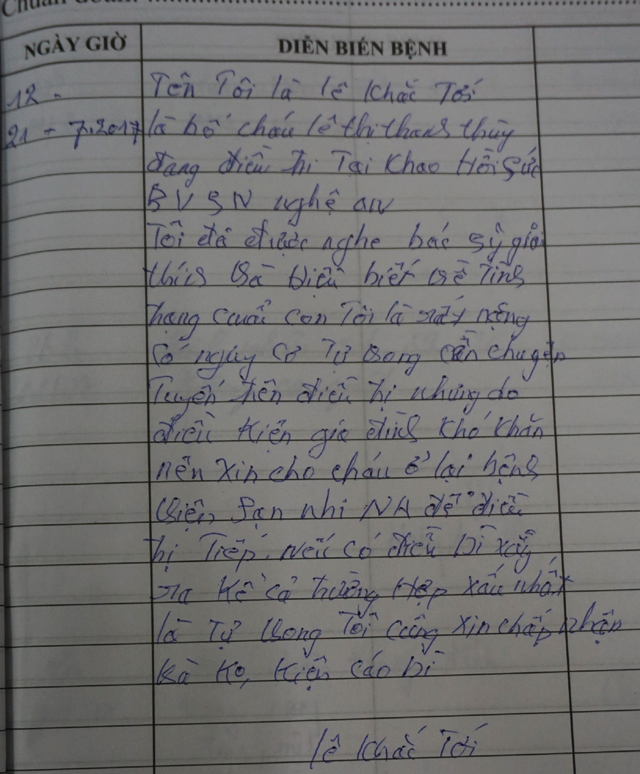 Chuẩn đoán:
NGÀY GIỜ DIỄN BIẾN BỆNH
12 - Tên Tôi là lê Khắc Tới
21 - 7.2017 là bố cháu lê thị thanh thùy
đang điều Trị Tại Khao Hồi Sức
BVSN nghệ an
Tôi đã được nghe bác sỹ giải
thích và Hiểu biết về Tình
trạng cuả con Tôi là rất nặng
Có nguy cơ Tự vong cần chuyển
Tuyến trên điều trị nhưng do
điều Kiện gia đình Khó Khăn
nên xin cho cháu ở lại bệnh
viện Sạn nhi NA để điều
trị Tiếp. nếu có điều Dì xẩy
ra Kể cả trường Hợp xấu nhất
là Tự vong Tôi cũng xin chấp nhận
và Ko, Kiện cáo Dì
lê Khắc Tới